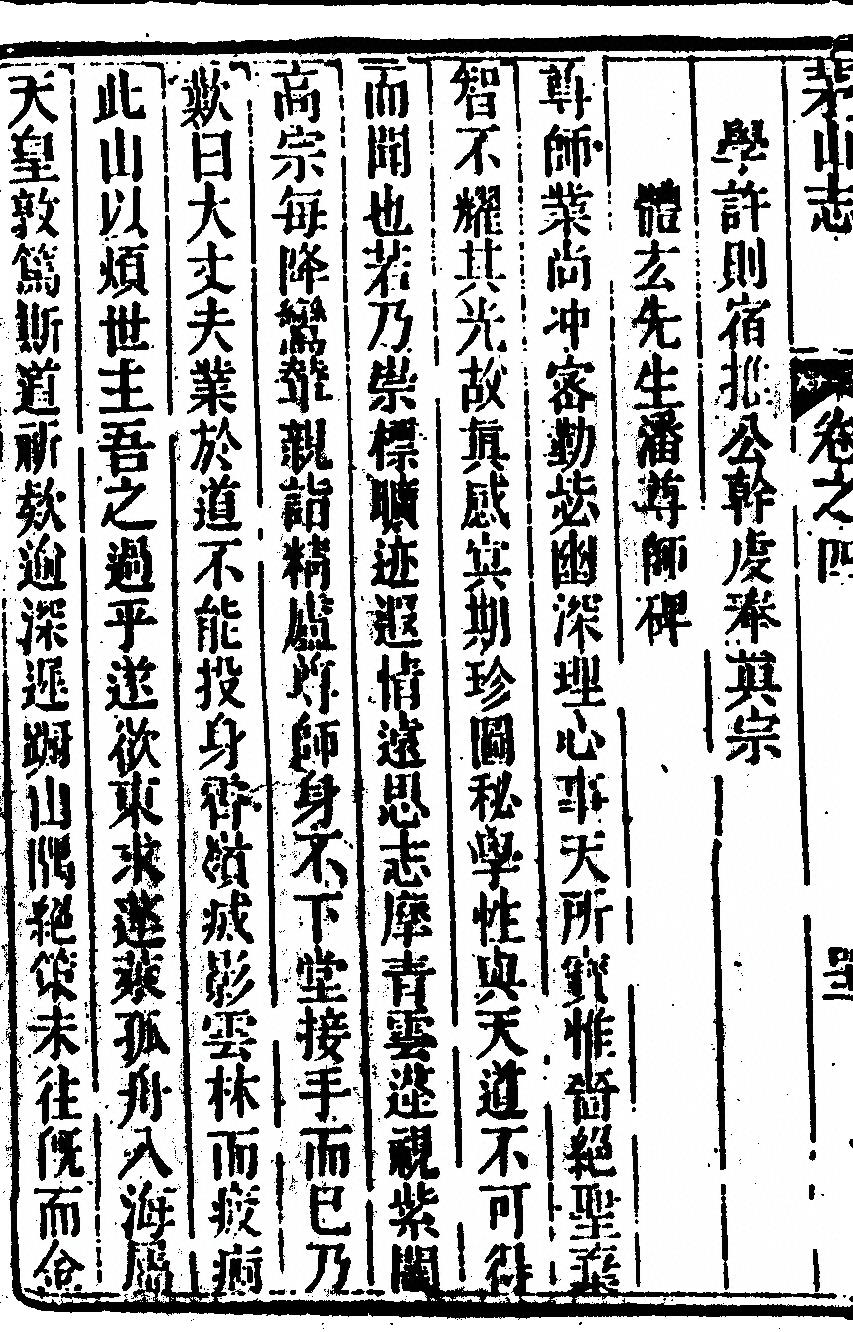 茅山志 卷之四
學許則宿挹公幹虔奉真宗
體玄先生潘尊師碑
尊師業尚冲密勤毖幽深理心事天所寶惟嗇絕聖棄
智不耀其光故真感冥期珍圖秘學性與天道不可得
而聞也若乃崇標曠迹遐情遠思志摩青雲蓬視紫闥
高宗每降鸞輦親詣精廬尊師身不下堂接手而已乃
歎曰大丈夫業於道不能投身霄嶺滅影雲林而疲痾
此山以煩世主吾之過乎遂欲東求蓬萊孤舟入海屬
天皇敦篤斯道祈欵逾深遲躕山隅絕策未往旣而僉